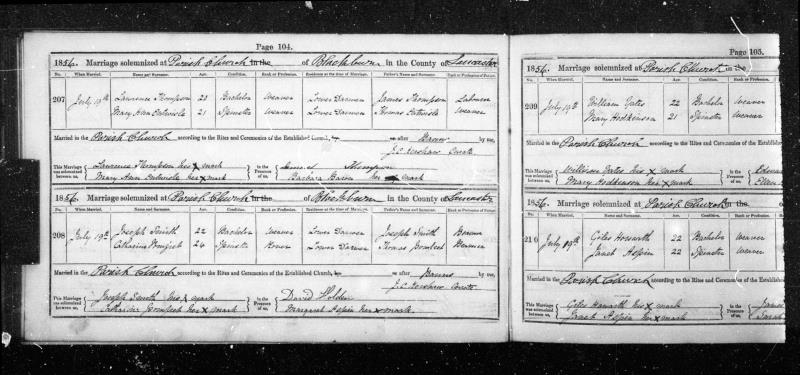 Page 104.
1856. Marriage solemnized at Parish Church in the of Blackburn in the County of Lancaster
No. When Married. Name and Surname. Age. Condition. Rank or Profession. Residence at the time of Marriage. Father's Name and Surname. Rank or Profession of Father.
207 July 19th Lawrence Thompson 21 Bachelor Weaver Lower Darwen James Thompson Labourer
Mary Ann Entwisle 21 Spinster Weaver Lower Darwen Thomas Entwisle Weaver
Married in the Parish Church according to the Rites and Ceremonies of the Established Church, by after Banns by me,
J.C. Kershaw Curate
This Marriage was solemnized between us, Lawrence Thompson his x mark
Mary Ann Entwisle her x mark
in the Presence of us, James Thompson
Barbara her x mark
1856. Marriage solemnized at Parish Church in the of Blackburn in the County of Lancaster
No. When Married. Name and Surname. Age. Condition. Rank or Profession. Residence at the time of Marriage. Father's Name and Surname. Rank or Profession of Father.
208 July 19th Joseph Smith 22 Bachelor Weaver Lower Darwen Joseph Smith
Catharine 24 Spinster Lower Darwen Thomas
Married in the Parish Church according to the Rites and Ceremonies of the Established Church, by after Banns by me,
J.C. Kershaw Curate
This Marriage was solemnized between us, Joseph Smith his x mark
Catharine her x mark
in the Presence of us, David Holden
Margaret Aspin her x mark
Page 105.
1856. Marriage solemnized at Parish Church in the
No. When Married. Name and Surname. Age. Condition. Rank or Profession.
209 July 19th William Yates 22 Bachelor Weaver
Mary Hodkinson 21 Spinster Weaver
Married in the Parish Church according to the Rites and Ceremonies of the Established
This Marriage was solemnized between us, William Yates his x mark
Mary Hodkinson her x mark
in the Presence of us,
1856. Marriage solemnized at Parish Church in the
No. When Married. Name and Surname. Age. Condition. Rank or Profession.
210 July 19th Giles Howarth 22 Bachelor Weaver
Janet Aspin 22 Spinster Weaver
Married in the Parish Church according to the Rites and Ceremonies of the Established
This Marriage was solemnized between us, Giles Howarth his x mark
Janet Aspin her x mark
in the Presence of us,